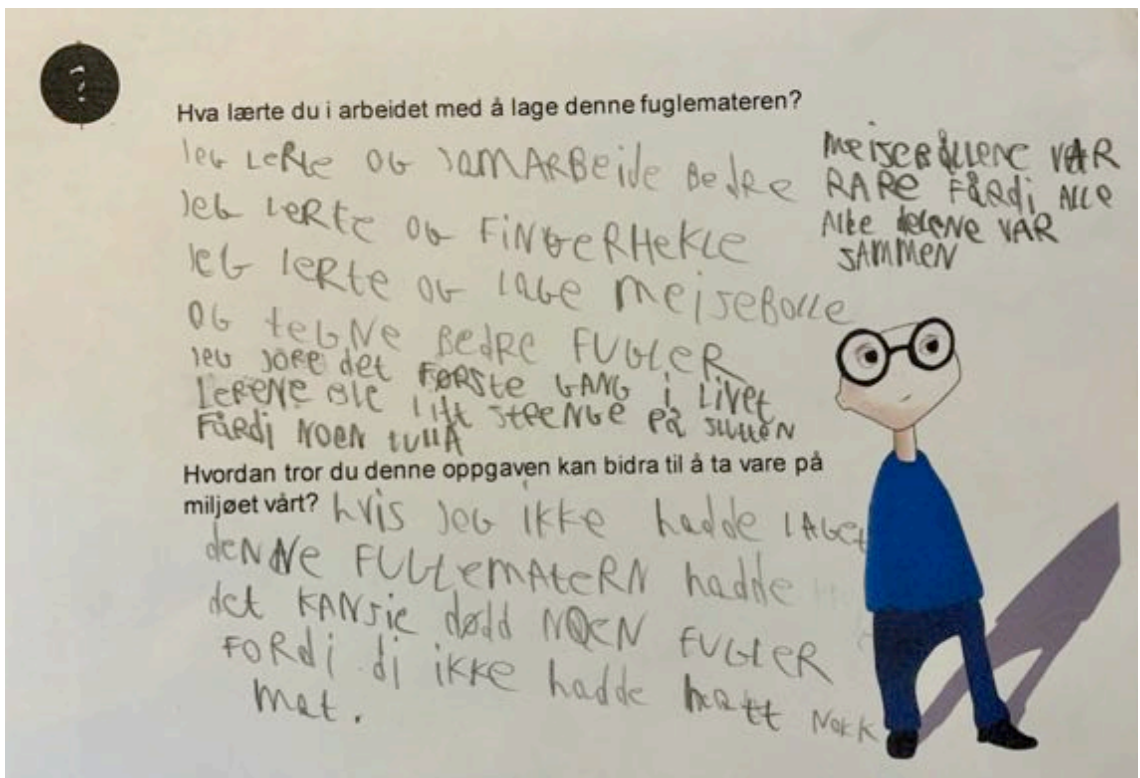 ?
Hva lærte du i arbeidet med å lage denne fuglemateren?
jeG LeRte OG SAMARBeide BedRe
jeG LeRte OG FiNGeRHeKLe
jeG LeRte OG LAGe MeiseBOLLe
OG teGNe BedRe FUGLeR
jeG JORe det FØRSte GANG i Livet
LeReNe BLe Litt StReNGe på SLUtteN
FÅRdi NOeN tULLA
MeiseBÅLLeNe VAR
RARe FÅRdi ALLe
ALLe deLeNe VAR
SAMMeN
Hvordan tror du denne oppgaven kan bidra til å ta vare på
miljøet vårt? hvis jeG ikke hadde LAGet
deNNe FUGLeMAteRN hadde
det KANSje dødd NOeN FUGLeR
FORdi di ikke hadde hatt NOKK
Mat.